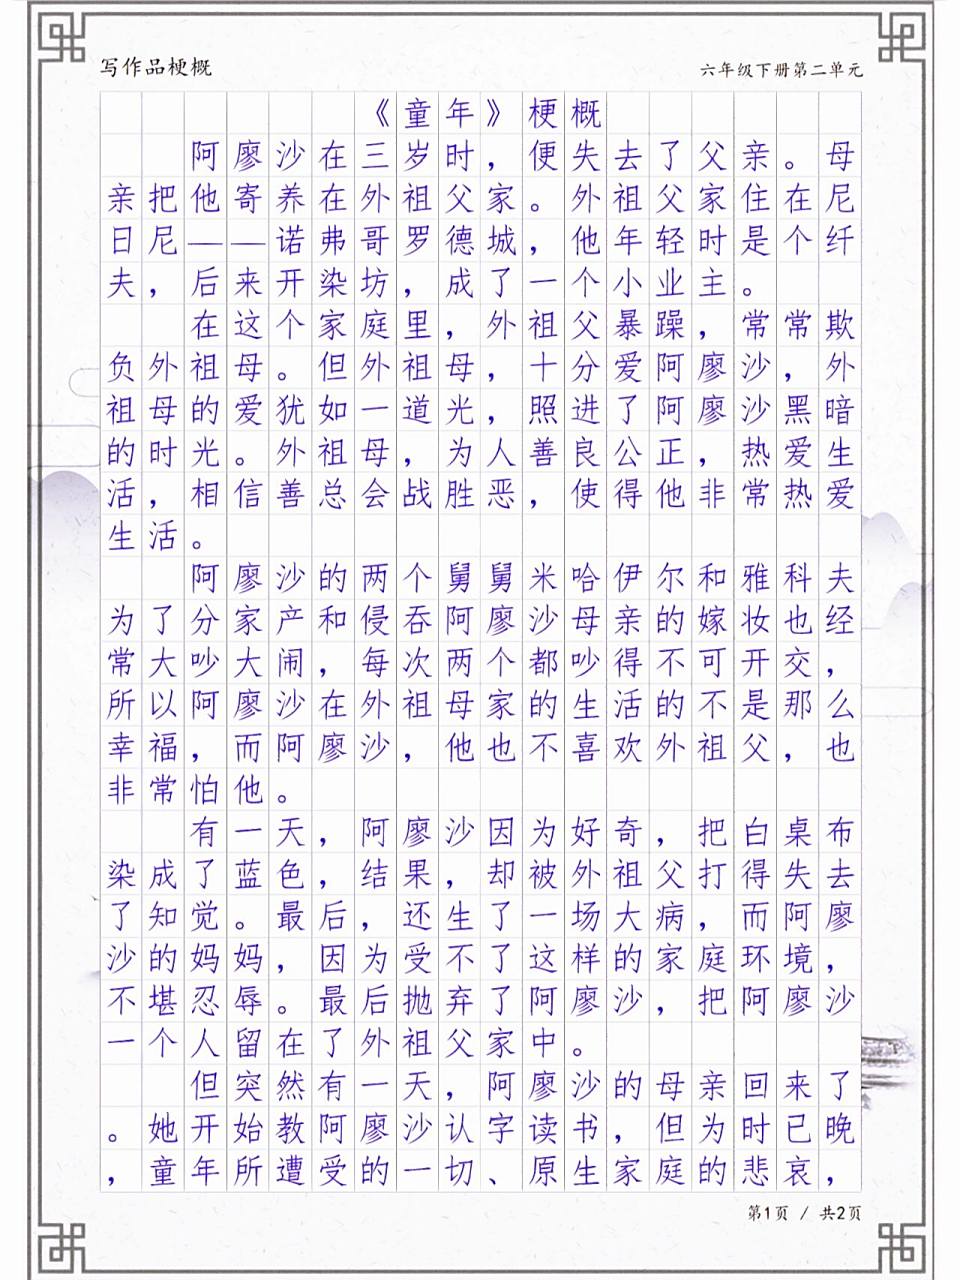 写作品梗概
六年级下册第二单元
《童年》梗概
阿廖沙在三岁时，便失去了父亲。母
亲把他寄养在外祖父家。外祖父家住在尼
日尼——诺弗哥罗德城，他年轻时是个纤
夫，后来开染坊，成了一个小业主。
在这个家庭里，外祖父暴躁，常常欺
负外祖母。但外祖母，十分爱阿廖沙，外
祖母的爱犹如一道光，照进了阿廖沙黑暗
的时光。外祖母，为人善良公正，热爱生
活，相信善总会战胜恶，使得他非常热爱
生活。
阿廖沙的两个舅舅米哈伊尔和雅科夫
为了分家产和侵吞阿廖沙母亲的嫁妆也经
常大吵大闹，每次两个都吵得不可开交，
所以阿廖沙在外祖母家的生活的不是那么
幸福，而阿廖沙，他也不喜欢外祖父，也
非常怕他。
有一天，阿廖沙因为好奇，把白桌布
染成了蓝色，结果，却被外祖父打得失去
了知觉。最后，还生了一场大病，而阿廖
沙的妈妈，因为受不了这样的家庭环境，
不堪忍辱。最后抛弃了阿廖沙，把阿廖沙
一个人留在了外祖父家中。
但突然有一天，阿廖沙的母亲回来了
。她开始教阿廖沙认字读书，但为时已晚
，童年所遭受的一切、原生家庭的悲哀，
第1页 / 共2页